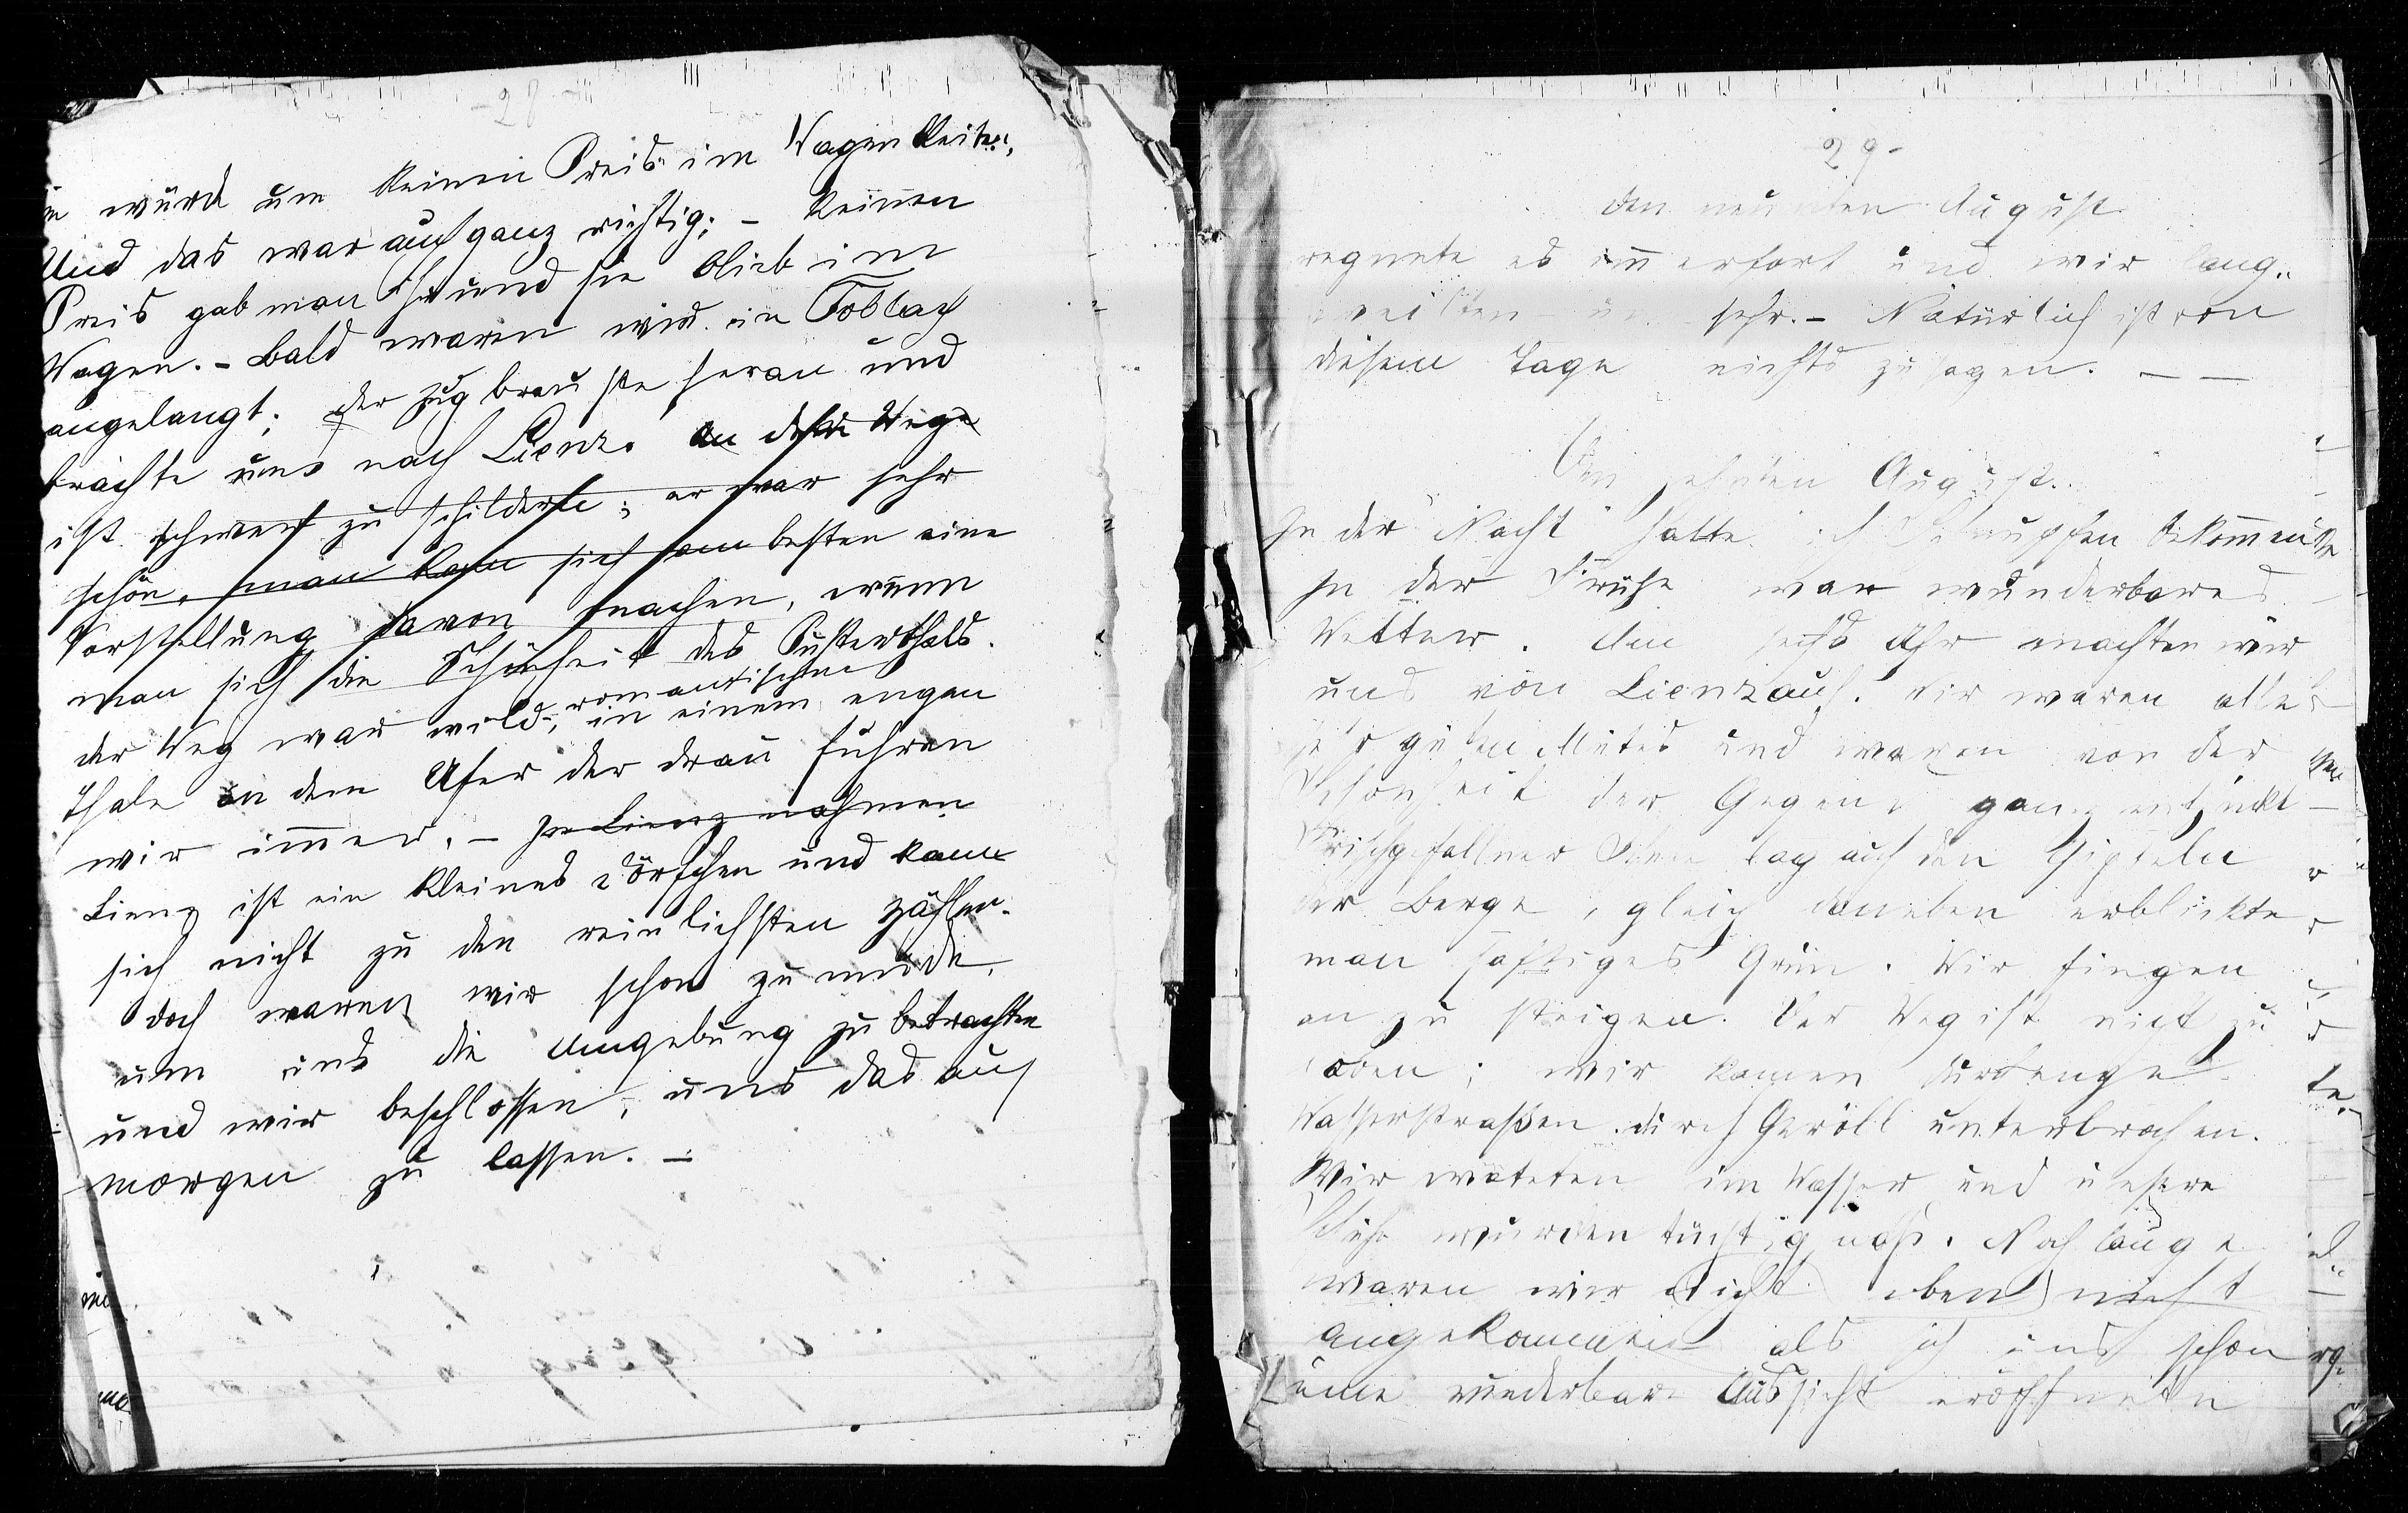 - 28 -
würde um keinen Preis im Wagen bleiben,
Und das war auch ganz richtig; - keinen
Preis gab man ihr und sie blieb im
Wagen. - Bald waren wir in Toblach
angelangt; der Zug brauste heran und
brachte uns nach Lienz. An dem Wege
ist schwer zu schildern; er war sehr
schön, man kann sich am besten eine
Vorstellung davon machen, wenn
man sich die Schönheit des Pusterthals.
der Weg war wild-romantischen
in einem engen
Thale an dem Ufer der Drau fuhren
wir immer. - In Lienz nahmen
Lienz ist ein kleines Dörfchen und kann
sich nicht zu den reinlichsten zählen.
doch waren wir schon zu müde,
um uns die Umgebung zu betrachten
und wir beschlossen, uns das auf
morgen zu lassen. -
29 -
den neunten August
regnete es immerfort und wir lang-
weilten uns sehr. - Natürlich ist von
diesem Tage nichts zu sagen. - -
Den zehnten August.
In der Nacht hatte ich Schnupfen bekommen
In der Frühe war wunderbares
Wetter. Um sechs Uhr machten wir
uns von Lienz auf. Wir waren alle
sehr guten Mutes und waren von der
Schönheit der Gegend ganz entzückt
Frischgefallner Schnee lag auf den Gipfeln
der Berge, gleich daneben erblickte
man saftiges Grün. Wir fingen
an zu steigen. Der Weg ist nicht zu
loben; wir kamen durch enge
Wasserstraßen durch Geröll unterbrochen.
Wir wateten im Wasser und unsere
Schuhe wurden tüchtig naß. Noch lange
waren wir nicht oben nicht
angekommen als sich uns schon
eine wunderbare Aussicht eröffnete